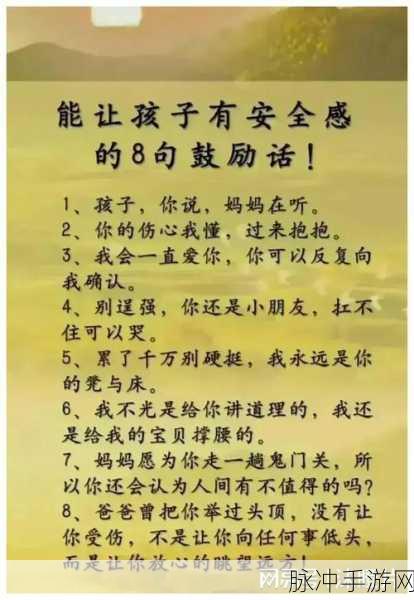 能让孩子有安全感
的8句鼓励话！
1、孩子，你说，妈妈在听。
2、你的伤心我懂，过来抱抱。
3、我会一直爱你，你可以反复向
我确认。
4、别逞强，你还是小朋友，扛不
住可以哭。
5、累了千万别硬挺，我永远是你
的凳与床。
6、我不光是给你讲道理的，我还
是给我的宝贝撑腰的。
7、妈妈愿为你走一趟鬼门关，所
以你还会认为人间有不值得的吗？
8、爸爸曾把你举过头顶，没有让
你受伤，不是让你向任何事低头，
而是让你放心的眺望远方！
脉冲手游网